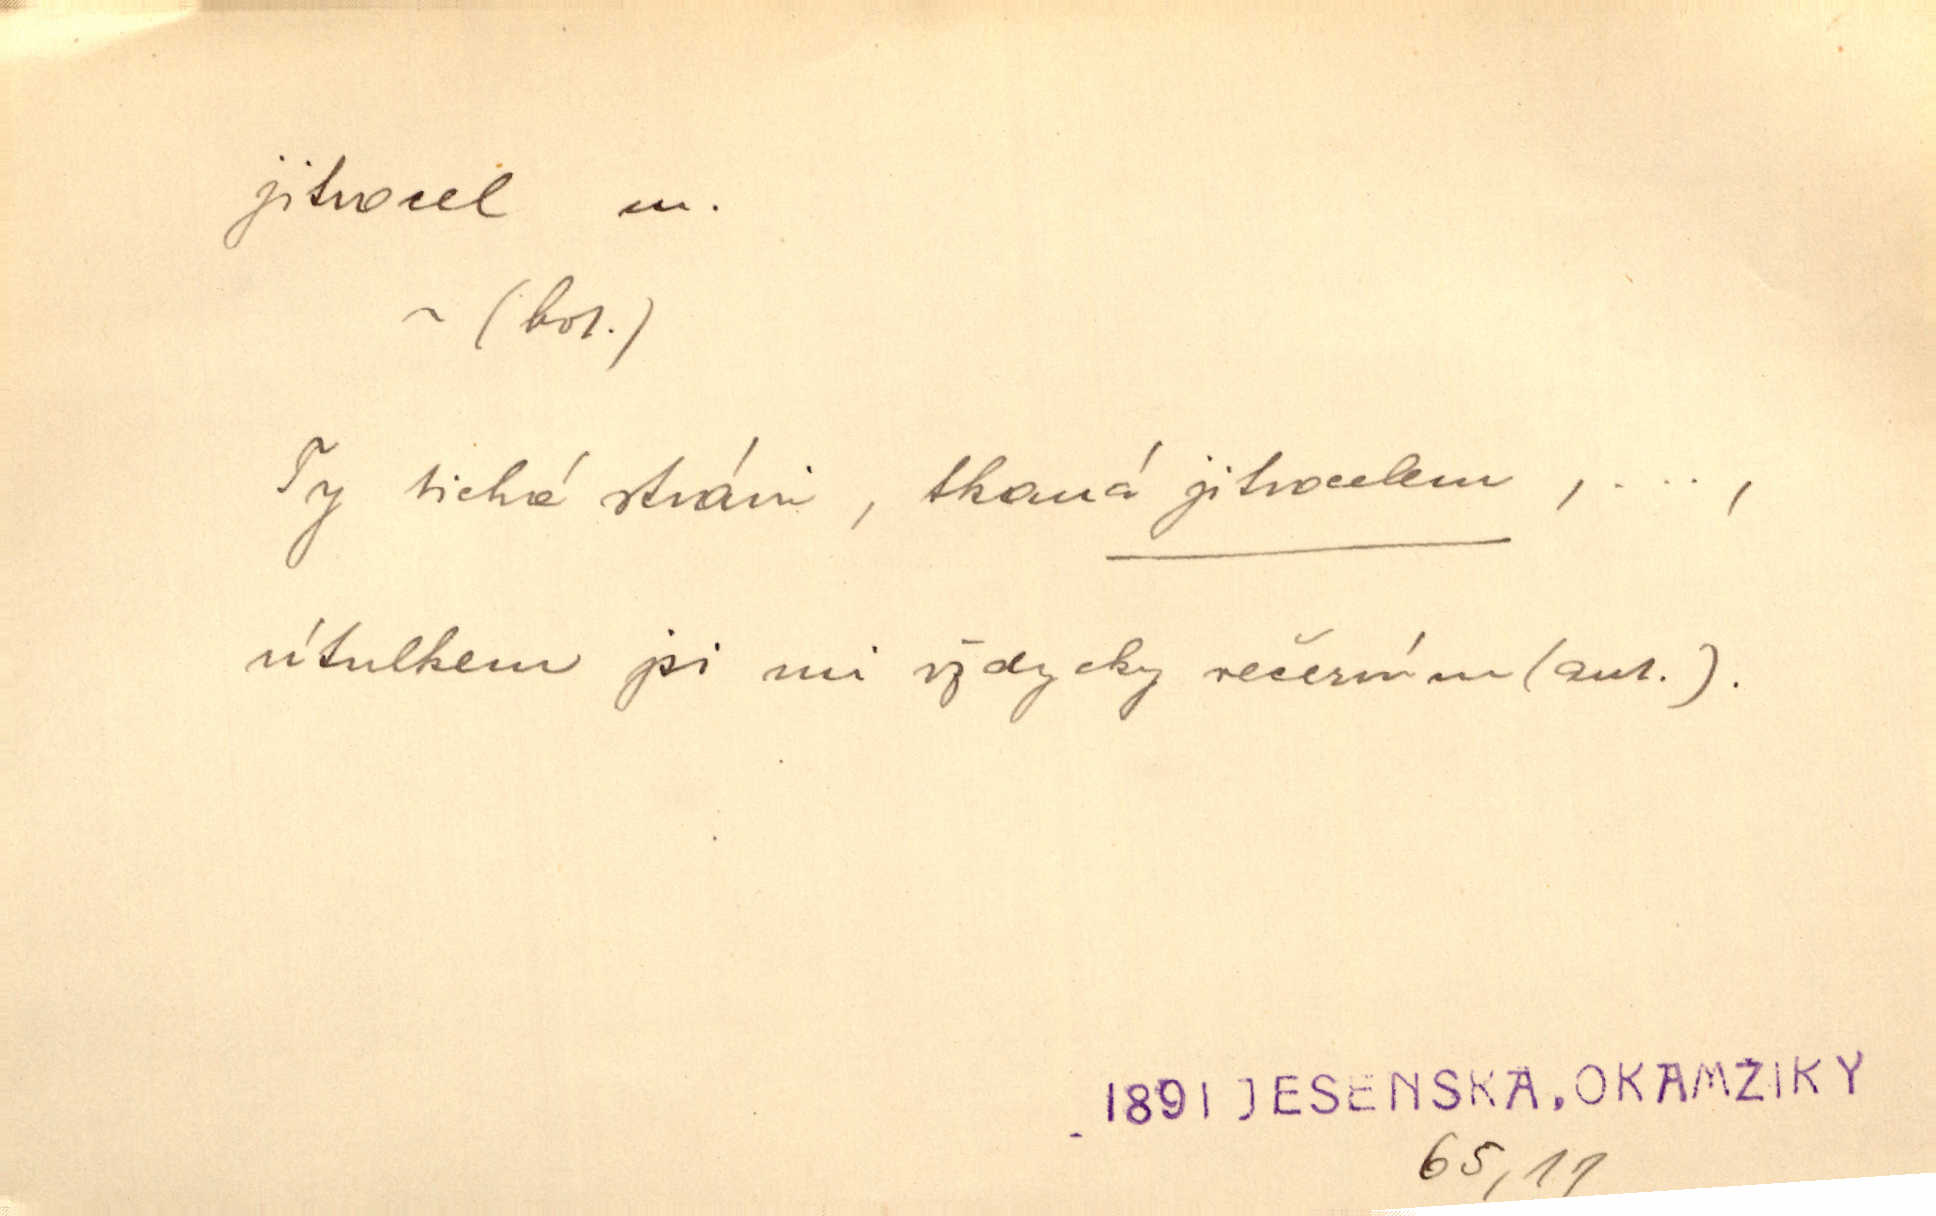 jitrocel m.
~ (bot.)
Ty tichá stráni, tkaná jitrocelem, ...,
útulkem jsi mi vždycky večerním (aut.).
1891 JESENSKÁ, OKAMŽIKY
65, 11